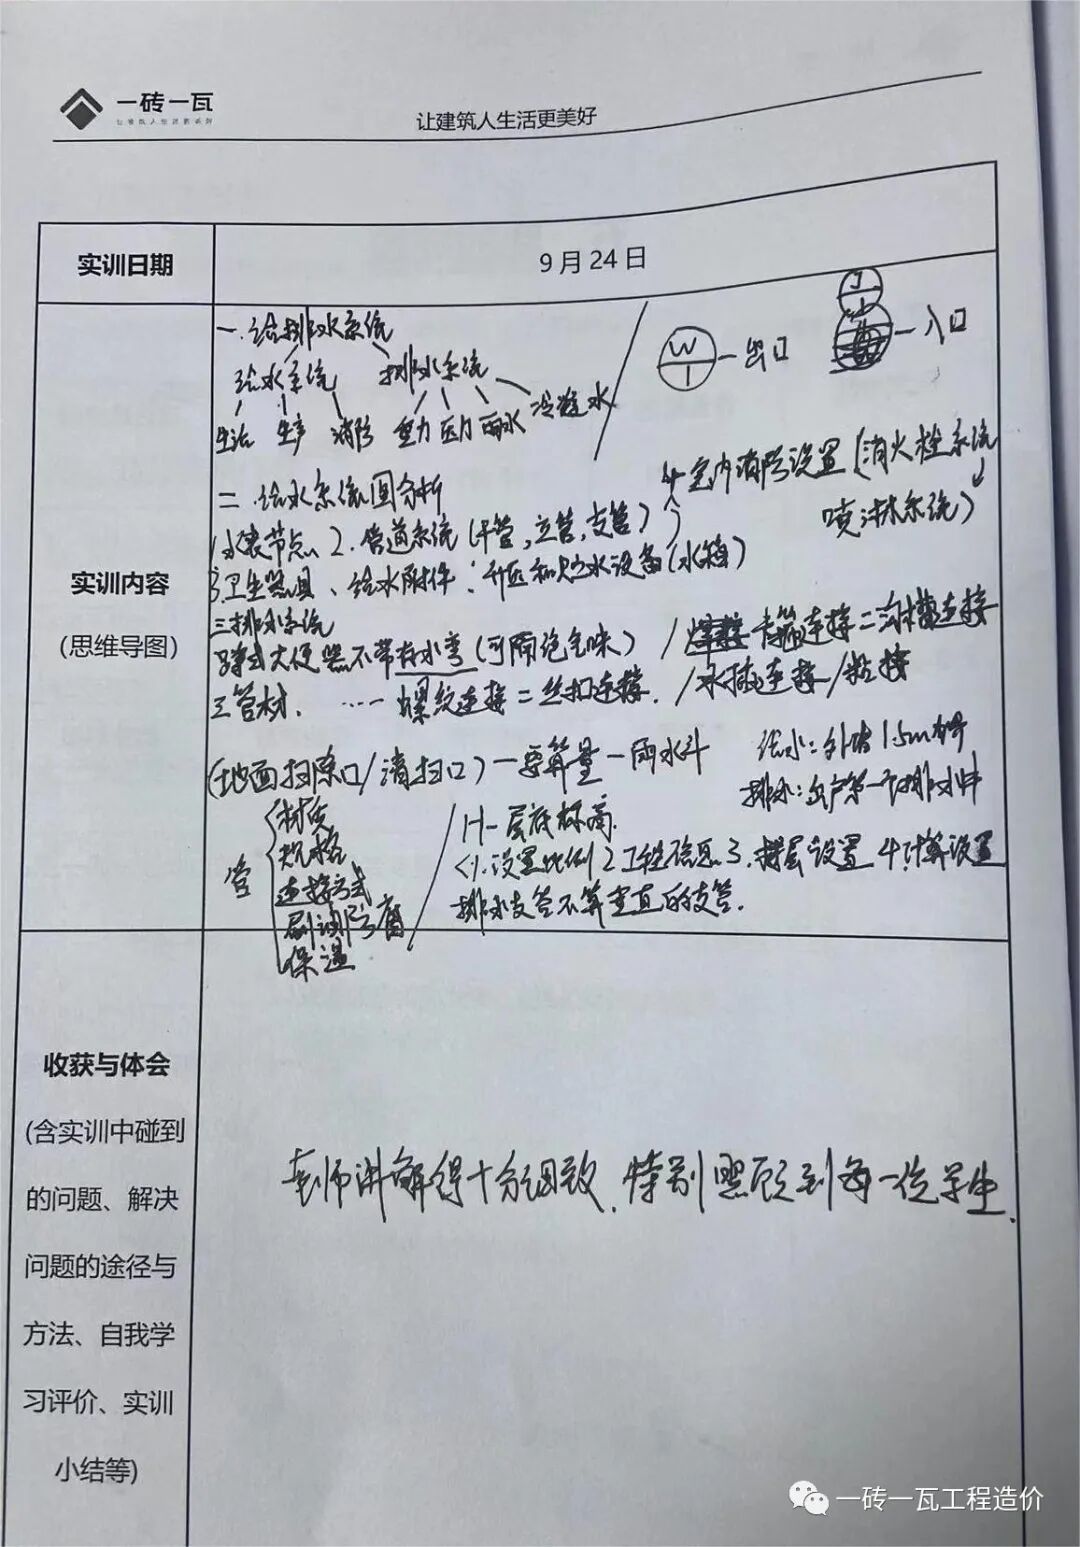 一砖一瓦
让建筑人生活更美好
实训日期
9月24日
实训内容
(思维导图)
一.给排水系统
给水系统 排水系统
生活 生产 消防 重力 压力 雨水 冷凝水
W
1
一出口
J
一入口
二.给水系统图分析
4.室内消防设置(消火栓系统
喷淋系统)
1.水表节点 2.管道系统(干管,立管,支管)
3.卫生器具、给水附件:升压和贮水设备(水箱)
三排水系统
蹲式大便器不带存水弯(可隔绝气味)
/ 卡箍连接=沟槽连接
三管材. ……螺纹连接=丝扣连接. /承插连接/粘接
(地面扫除口/清扫口)一要算量一雨水斗
给水:外墙1.5m
排水:出户第一个排水井
管
材质
规格
连接方式
刷油防腐
保温
H-层底标高.
<1.设置比例 2工程信息 3.楼层设置 4.计算设置
排水支管不算垂直的支管.
收获与体会
(含实训中碰到
的问题、解决
问题的途径与
方法、自我学
习评价、实训
小结等)
老师讲解得十分细致,特别照顾到每一位学生.
一砖一瓦工程造价